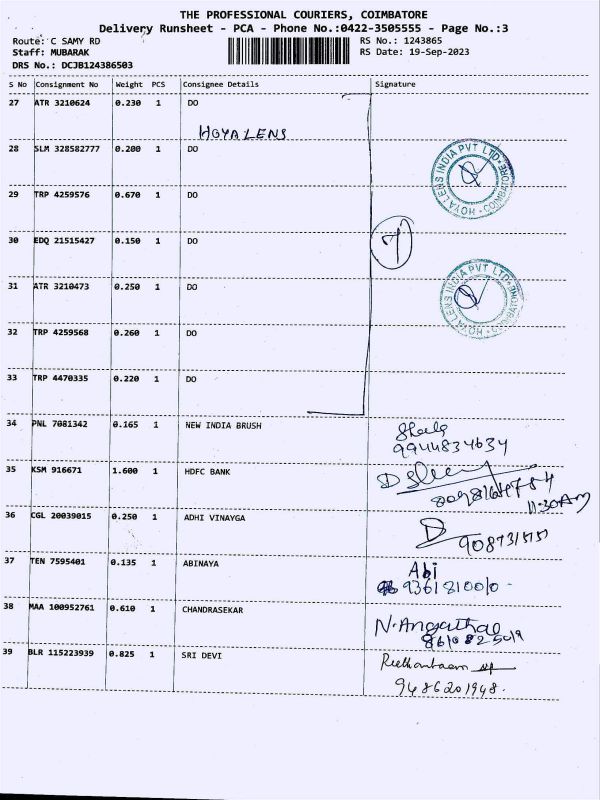 THE PROFESSIONAL COURIERS, COIMBATORE
Delivery Runsheet - PCA - Phone No.:0422-3505555 - Page No.:3
Route: C SAMY RD
RS No.: 1243865
Staff: MUBARAK
RS Date: 19-Sep-2023
DRS No.: DCJB124386503
S No Consignment No Weight PCS Consignee Details Signature
27 ATR 3210624 0.230 1 DO
HOYA LENS
28 SLM 328582777 0.200 1 DO
HOYA LENS INDIA PVT LTD COIMBATORE
29 TRP 4259576 0.670 1 DO
30 EDQ 21515427 0.150 1 DO
7
31 ATR 3210473 0.250 1 DO
HOYA LENS INDIA PVT LTD COIMBATORE
32 TRP 4259568 0.260 1 DO
33 TRP 4470335 0.220 1 DO
34 PNL 7081342 0.165 1 NEW INDIA BRUSH
9944834634
35 KSM 916671 1.600 1 HDFC BANK
11:30AM
36 CGL 20039015 0.250 1 ADHI VINAYGA
37 TEN 7595401 0.135 1 ABINAYA
Abi
9361810010
38 MAA 100952761 0.610 1 CHANDRASEKAR
N.Angathal
39 BLR 115223939 0.825 1 SRI DEVI
9486201948.